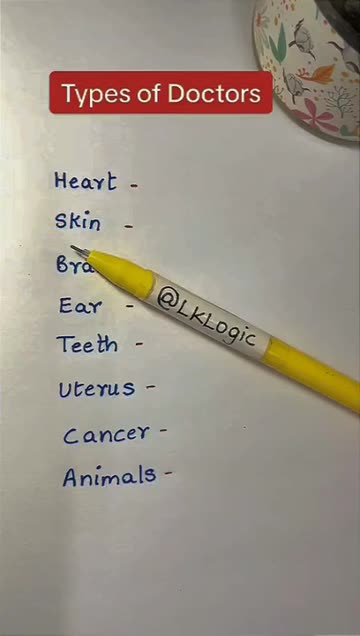 Types of Doctors
Heart -
Skin -
Ear -
@LKLogic
Teeth -
Uterus -
Cancer -
Animals -